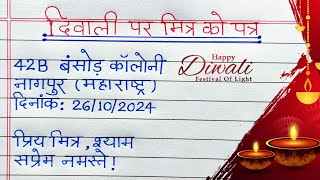 दिवाली पर मित्र को पत्र
42B बंसोड़ कॉलोनी
नागपुर (महाराष्ट्र)
दिनांक: 26/10/2024
Happy
Diwali
Festival Of Light
प्रिय मित्र, श्याम
सप्रेम नमस्ते!